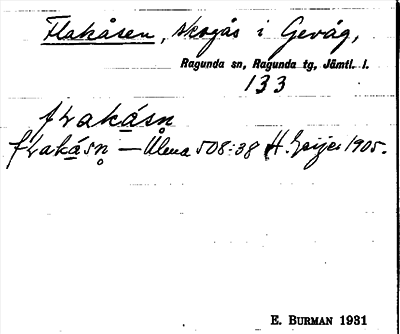 Flakåsen, skogås i Gevåg,
Ragunda sn, Ragunda tg, Jämtl. l.
133
fLakásn̥
fLakásn̥ — Ulma 508:38 H. Geijer 1905.
E. BURMAN 1931